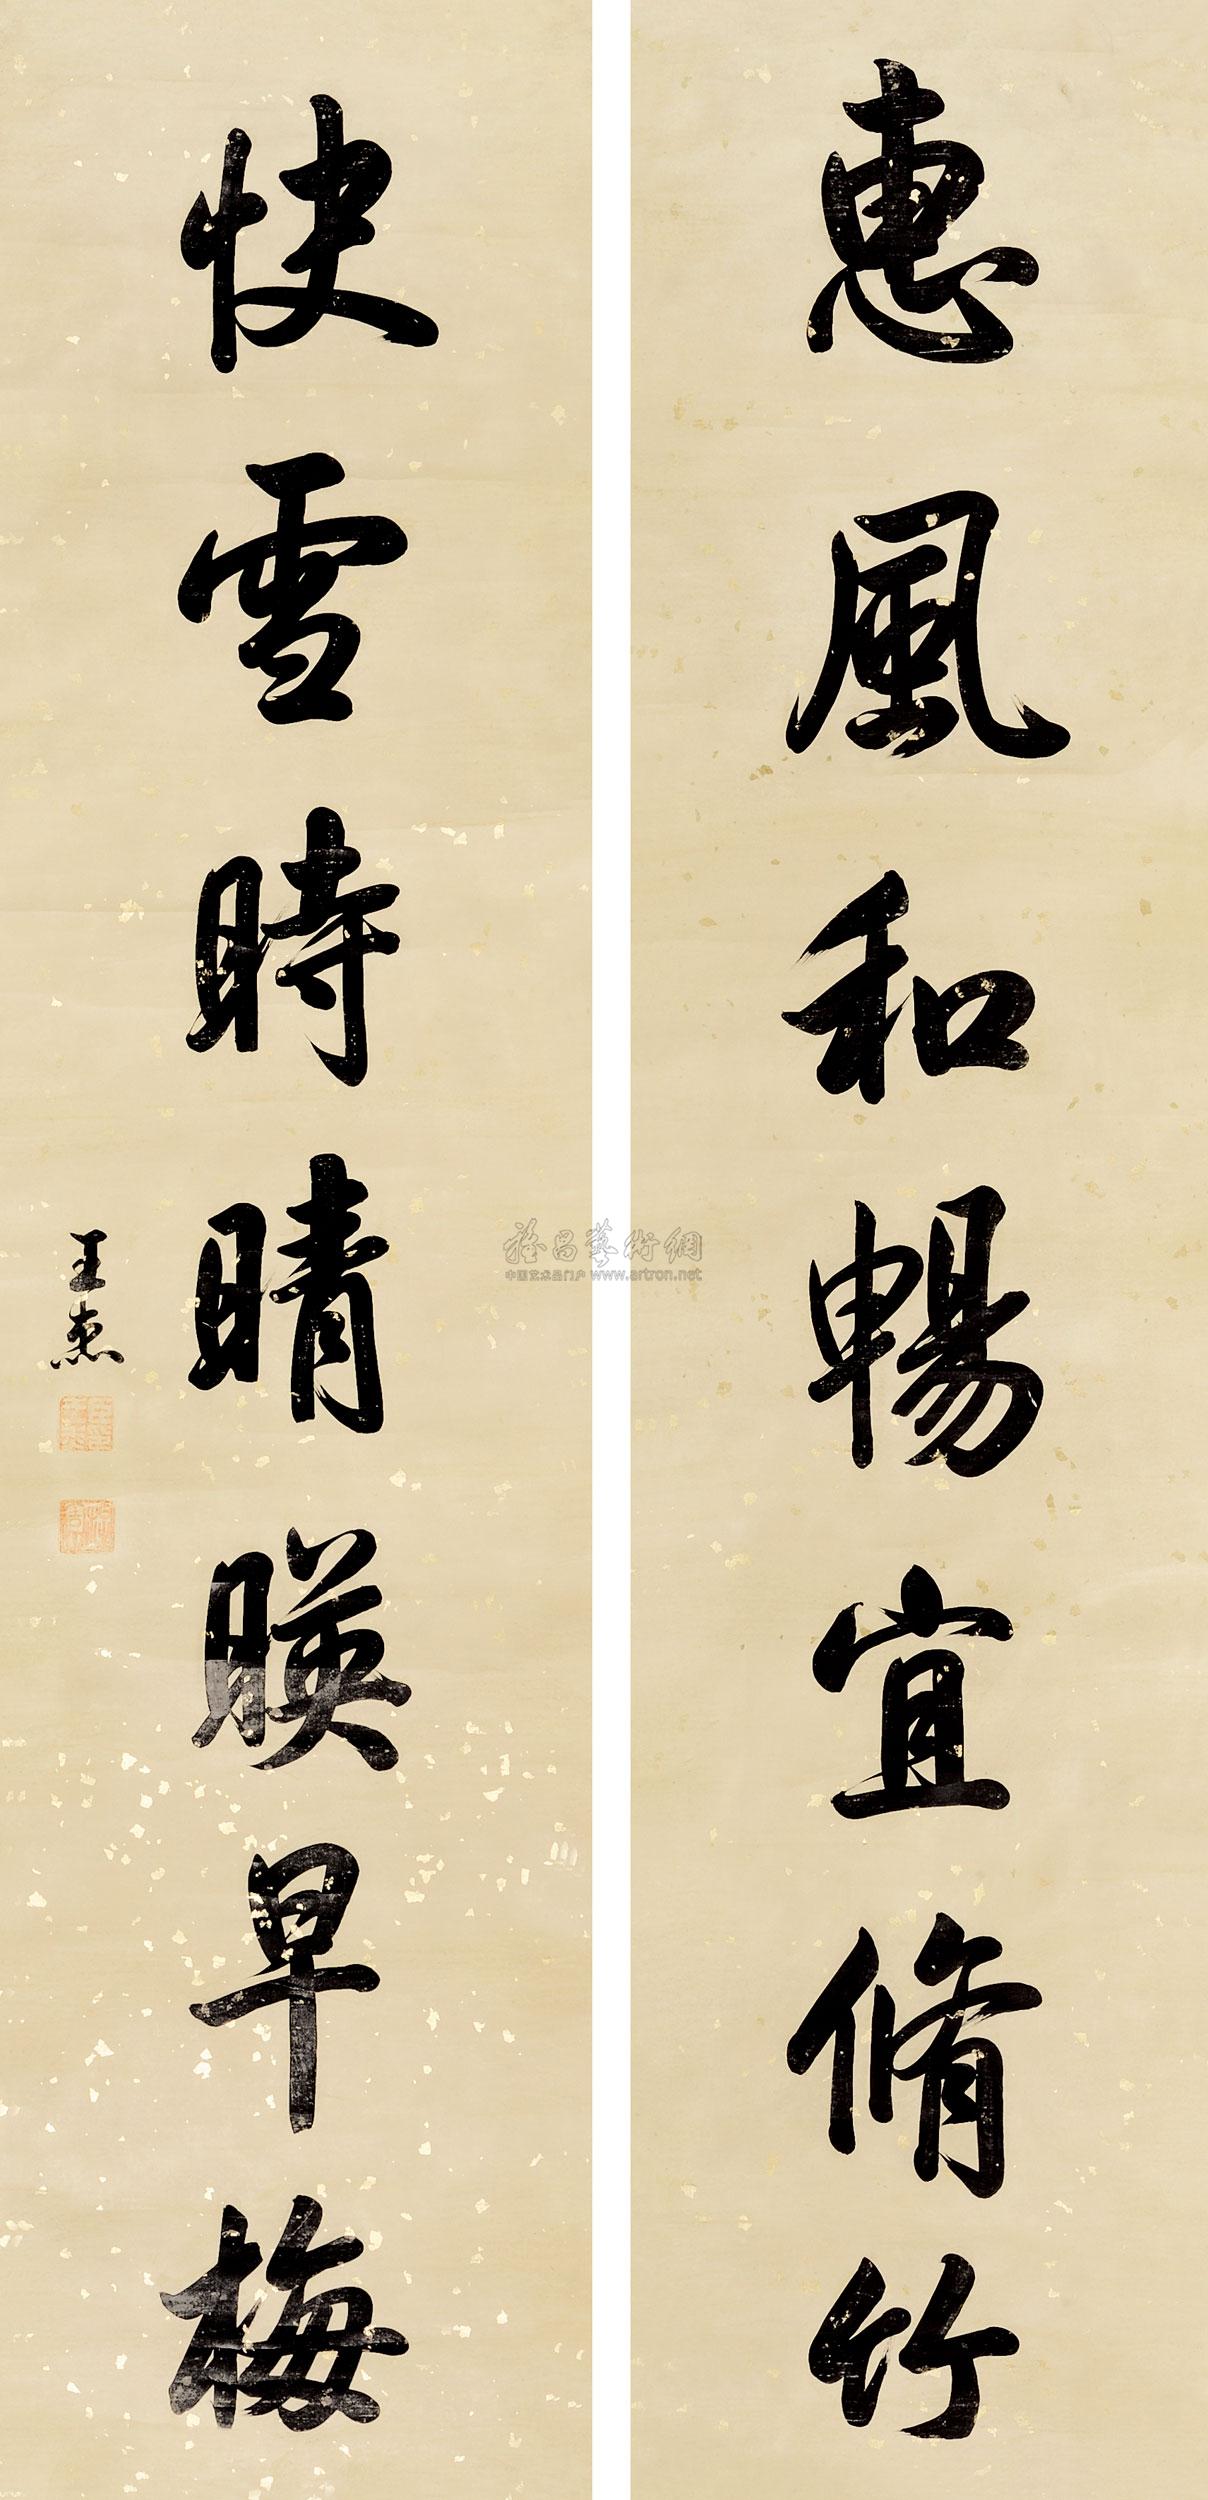 惠風和暢宜脩竹
快雪時晴暎早梅
王杰
雅昌藝術網
中国艺术品门户 www.artron.net